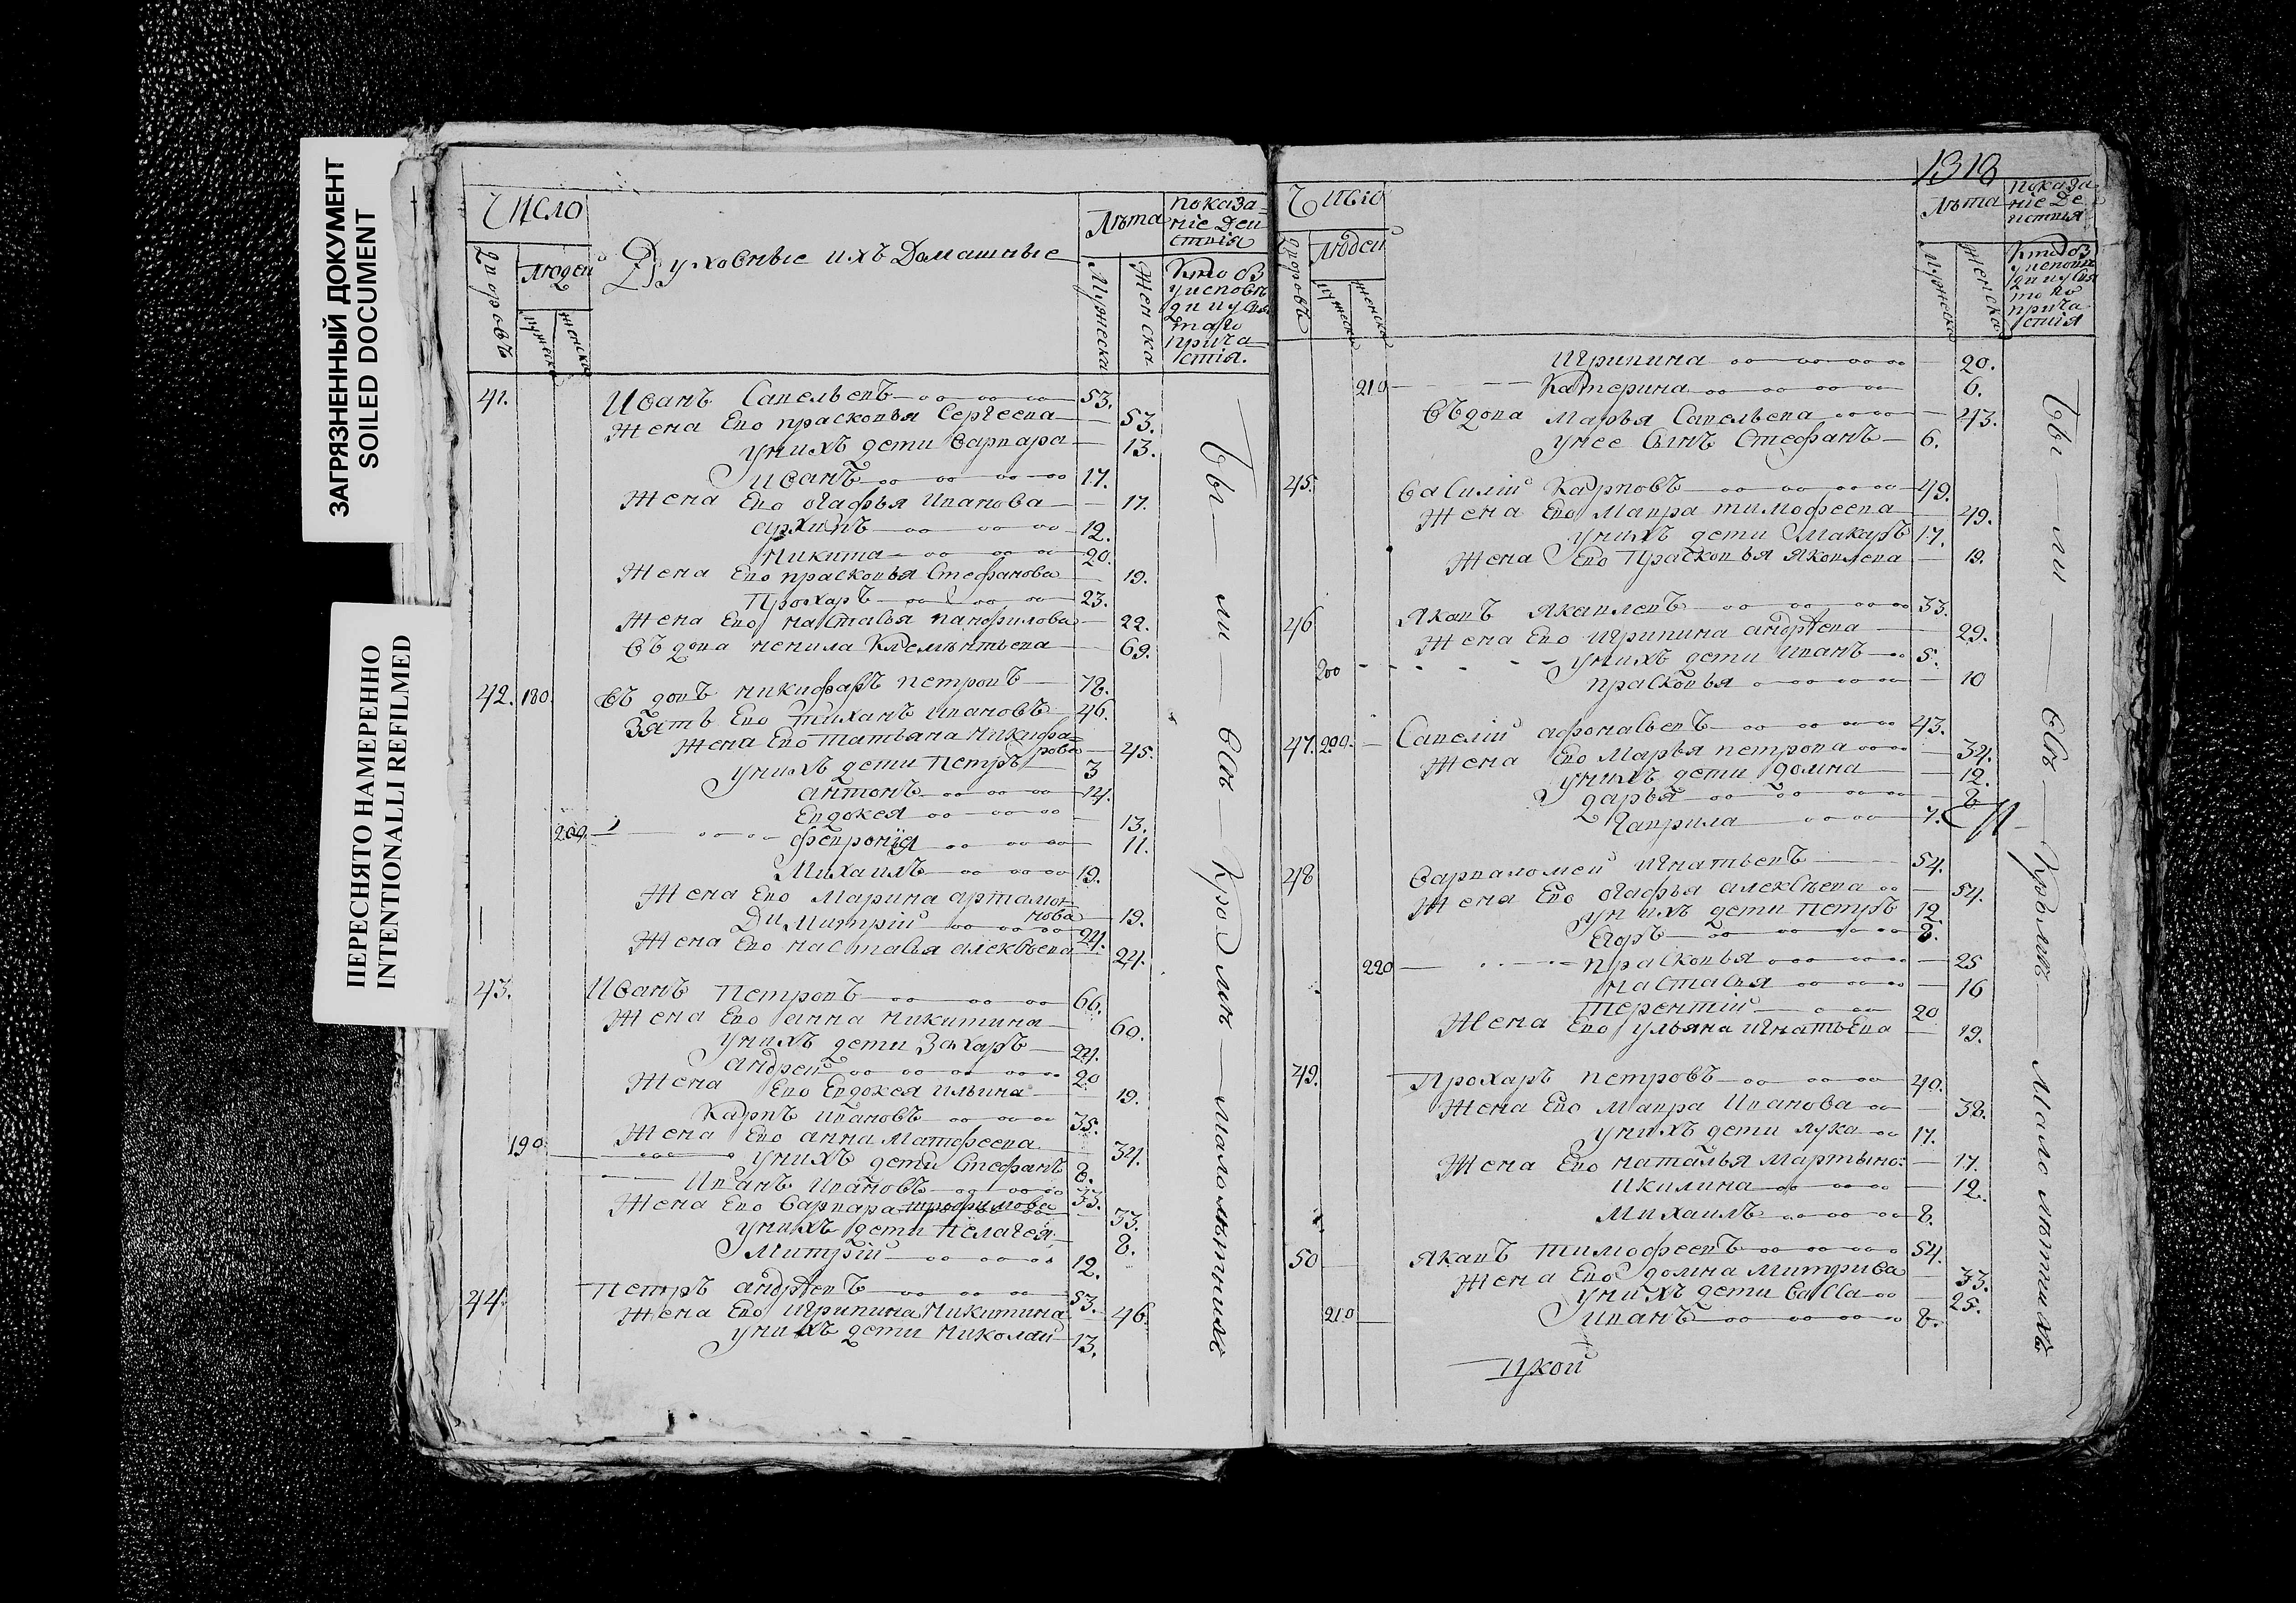 ЗАГРЯЗНЕННЫЙ ДОКУМЕНТ
SOILED DOCUMENT
ПЕРЕСНЯТО НАМЕРЕННО
INTENTIONALLI REFILMED
Число
Дворовъ
Людей
мужеска
женска
Духовные ихъ Домашные
Лѣта
Мужеска
Женска
показа=
ніе Деи
ствія
Кто об
у исповѣ
ди и у свя
таго
прича
стія.
41. Иванъ Савельевъ 53.
Жена Ево прасковья Сергеева 53.
у нихъ дети Варвара 13.
Иванъ 17.
Жена Ево огафья Иванова 17.
архипъ 12.
Микита 20.
Жена Ево прасковья Стефанова 19.
Прохаръ 23.
Жена Ево настасья панфилова 22.
Въдова ненила Клементьева 69.
42. 180. Въдовъ никифаръ петровъ 78.
Зять Ево тиханъ Ивановъ 46.
Жена Ево татьяна Микифа=
рова 45.
у нихъ дети Петръ 3
антонъ 14.
Евдокея 13.
200. феврония 11.
Михаилъ 19.
Жена Ево Марина артамо=
нова 19.
Димитрій 24.
Жена Ево настасья алексѣева 24.
43. Иванъ Петровъ 66.
Жена Ево анна Микитина 60.
у нихъ дети Захаръ 24.
андрей 20
Жена Ево Евдокея Ильина 19.
Карпъ ивановъ 35.
190 Жена Ево анна Матфеева 34.
у нихъ дети Стефанъ 8.
Иванъ ивановъ 33.
Жена Ево Варвара трофимова 33.
у нихъ дети Пелагея 8.
Митрій 12.
44. Петръ андреевъ 53.
Жена Ево Игрипина Микитина 46.
у нихъ дети николай 13.
Бы — ли — Всѣ — Кромѣ — малолѣтныхъ
1318
Число
Дворовъ
Людей
мужеска
женска
Лѣта
Мужеска
Женска
показа
ніе Де
иствия
Кто об
у исповѣ
ди и у свя
то го
прича
стія
Игрипина 20.
210 Катерина 6.
Въдова Марья Савельева 43.
у нее Сынъ Стефанъ 6.
45. Василій Карповъ 49.
Жена Ево Мавра тимофеева 49.
у нихъ дети Макаръ 17.
Жена Ево Прасковья Яковлева 19.
46 Яковъ Яковлевъ 33.
Жена Ево Игрипина андреева 29.
200 у нихъ дети Иванъ 5.
прасковья 10
47. 200. Савелій афонасьевъ 43.
Жена Ево Марья петрова 34.
у нихъ дети домна 12.
дарья 8
Гаврила 7.
48 Варваломей игнатьевъ 54.
Жена Ево огафья алексѣева 54.
у нихъ дети Петръ 12.
Егоръ 8.
220 прасковья 25
настасья 16
Терентій 20
Жена Ево ульяна игнатьева 19.
49. Прохаръ петровъ 40.
Жена Ево Мавра Иванова 38.
у нихъ дети лука 17.
Жена Ево наталья Мартыно: 17.
икилина 12.
Михаилъ 8.
50 Яковъ тимофеевъ 54.
Жена Ево домна Митрива 33.
у нихъ дети Васса 25.
210 Иванъ 8.
Бы — ли — Всѣ — Кромѣ — Малолѣтныхъ